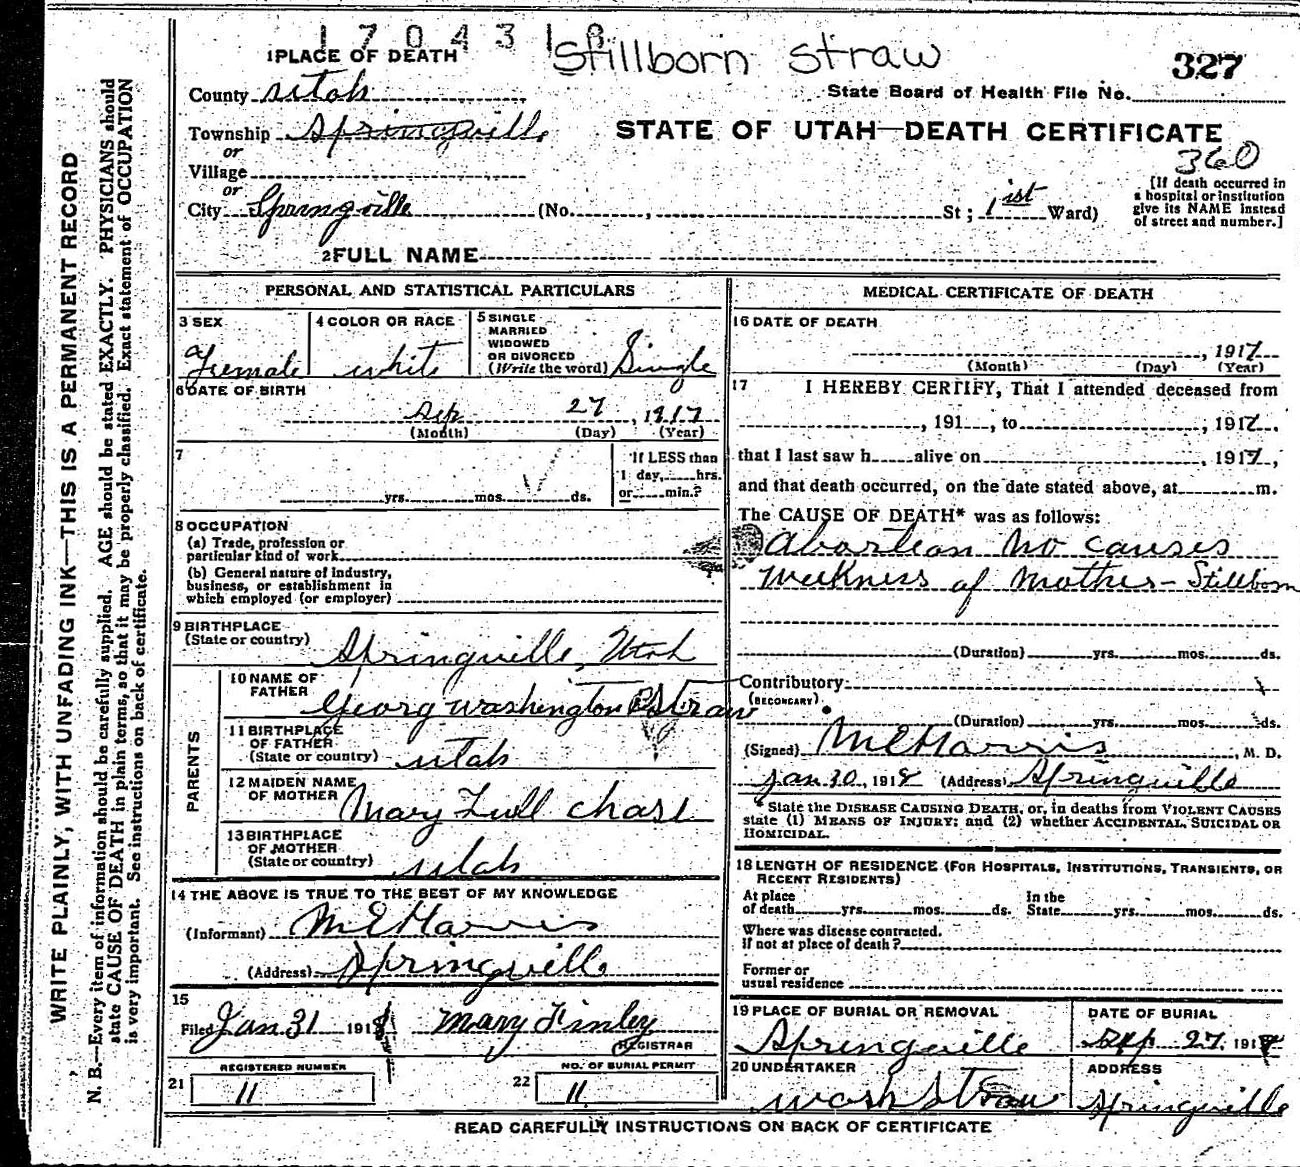 170431B
Stillborn Straw
327
1 PLACE OF DEATH
County Utah
State Board of Health File No.
Township Springville
STATE OF UTAH—DEATH CERTIFICATE
or
360
Village
or
City Springville (No. , St ; 1ist Ward)
[If death occurred in
a hospital or institution
give its NAME instead
of street and number.]
2 FULL NAME
PERSONAL AND STATISTICAL PARTICULARS
3 SEX
Female
4 COLOR OR RACE
white
5 SINGLE
MARRIED
WIDOWED
OR DIVORCED
(Write the word) Single
6 DATE OF BIRTH
Sep 27, 1917
(Month) (Day) (Year)
7
yrs. mos. ds.
If LESS than
1 day, hrs.
or min.?
8 OCCUPATION
(a) Trade, profession or
particular kind of work
(b) General nature of industry,
business, or establishment in
which employed (or employer)
9 BIRTHPLACE
(State or country) Springville, Utah
PARENTS
10 NAME OF
FATHER
Georg Washington Straw
11 BIRTHPLACE
OF FATHER
(State or country) Utah
12 MAIDEN NAME
OF MOTHER Mary Chase
13 BIRTHPLACE
OF MOTHER
(State or country) Utah
14 THE ABOVE IS TRUE TO THE BEST OF MY KNOWLEDGE
(Informant) M E Harris
(Address) Springville
15
Filed Jan 31 1918 Mary Finley
REGISTRAR
21 REGISTERED NUMBER
11
22 NO. OF BURIAL PERMIT
11
MEDICAL CERTIFICATE OF DEATH
16 DATE OF DEATH
, 1917
(Month) (Day) (Year)
17 I HEREBY CERTIFY, That I attended deceased from
, 191 , to , 1917.
that I last saw h alive on , 1917,
and that death occurred, on the date stated above, at m.
The CAUSE OF DEATH* was as follows:
Abortion No causes
Weekness of Mother - Stillborn
(Duration) yrs. mos. ds.
Contributory
(SECONDARY)
(Duration) yrs. mos. ds.
(Signed) M E Harris, M. D.
Jan 30, 1918 (Address) Springville
*State the DISEASE CAUSING DEATH, or, in deaths from VIOLENT CAUSES
state (1) MEANS OF INJURY; and (2) whether ACCIDENTAL, SUICIDAL OR
HOMICIDAL.
18 LENGTH OF RESIDENCE (FOR HOSPITALS, INSTITUTIONS, TRANSIENTS, OR
RECENT RESIDENTS)
At place
of death yrs. mos. ds.
In the
State yrs. mos. ds.
Where was disease contracted.
If not at place of death?
Former or
usual residence
19 PLACE OF BURIAL OR REMOVAL
Springville
DATE OF BURIAL
Sep 27, 191
20 UNDERTAKER
Wash Straw
ADDRESS
Springville
READ CAREFULLY INSTRUCTIONS ON BACK OF CERTIFICATE
WRITE PLAINLY, WITH UNFADING INK—THIS IS A PERMANENT RECORD
N. B.—Every item of information should be carefully supplied. AGE should be stated EXACTLY. PHYSICIANS should
state CAUSE OF DEATH in plain terms, so that it may be properly classified. Exact statement of OCCUPATION
is very important. See instructions on back of certificate.